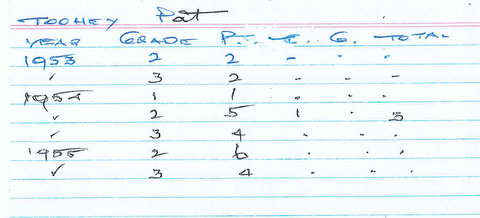 TOOHEY Pat
YEAR GRADE P. T. G. TOTAL
1953 2 2 - . .
✓ 3 2 - - -
1954 1 1 . . .
✓ 2 5 1 . 3
✓ 3 4 . . .
1955 2 6 . . .
✓ 3 4 . . .